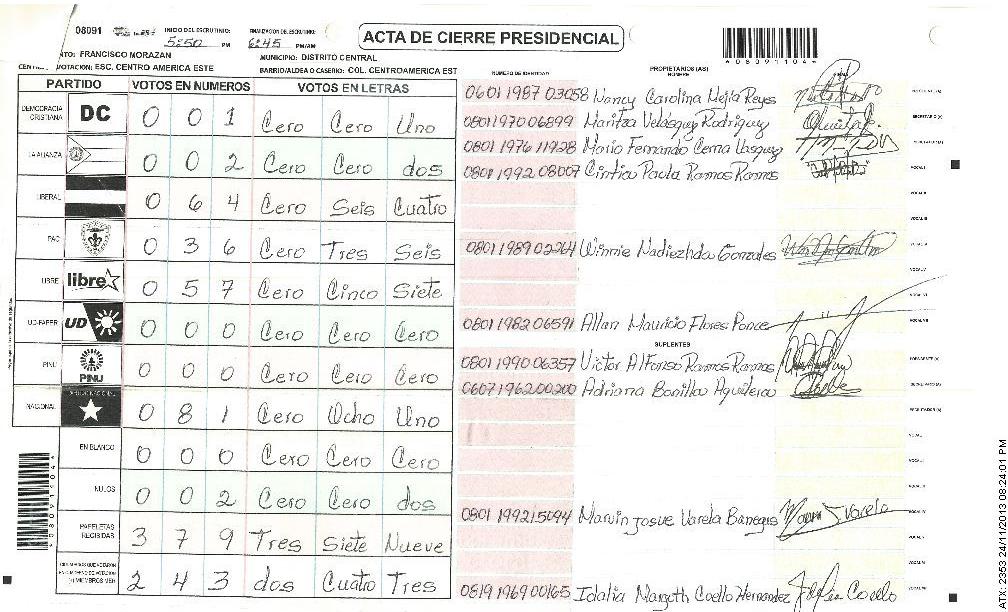 08091
INICIO DEL ESCRUTINIO:
5:50 PM
FINALIZACION DE ESCRUTINIO:
6:45 PM/AM
ACTA DE CIERRE PRESIDENCIAL
*08091104*
NTO: FRANCISCO MORAZAN
MUNICIPIO: DISTRITO CENTRAL
VOTACION: ESC. CENTRO AMERICA ESTE
BARRIO/ALDEA O CASERIO: COL. CENTROAMERICA EST
PARTIDO VOTOS EN NUMEROS VOTOS EN LETRAS
DEMOCRACIA CRISTIANA DC 0 0 1 Cero Cero Uno
LA ALIANZA 0 0 2 Cero Cero dos
LIBERAL 0 6 4 Cero Seis Cuatro
PAC 0 3 6 Cero Tres Seis
LIBRE libre 0 5 7 Cero Cinco Siete
UD-FAPER UD 0 0 0 Cero Cero Cero
PINU PINU 0 0 0 Cero Cero Cero
NACIONAL 0 8 1 Cero Ocho Uno
EN BLANCO 0 0 0 Cero Cero Cero
NULOS 0 0 2 Cero Cero dos
PAPELETAS RECIBIDAS 3 7 9 Tres Siete Nueve
CIUDADANOS QUE VOTARON EN CUADERNO DE VOTACION (+) MIEMBROS MER 2 4 3 dos Cuatro Tres
*08091104*
NUMERO DE IDENTIDAD
PROPIETARIOS (AS)
NOMBRE
0601 1987 03058 Nancy Carolina Mejia Reyes
0801 1970 06899 Maritza Velásquez Rodriguez
0801 1976 11928 Mario Fernando Cerna Vasquez
0801 1992 08007 Cintia Paula Ramos Ramos
0801 1989 02264 Winnie Nadiezhda Gonzales
0801 1982 06591 Allan Mauricio Flores Ponce
SUPLENTES
0801 1990 06357 Victor Alfonso Ramos Ramos
0607 1962 00200 Adriana Bonilla Aguilera
0801 1992 15094 Marvin Josue Varela Banegas
0819 1969 00165 Idalia Margoth Coello Hernandez
ATX: 2353 24/11/2013 08:24:01 PM